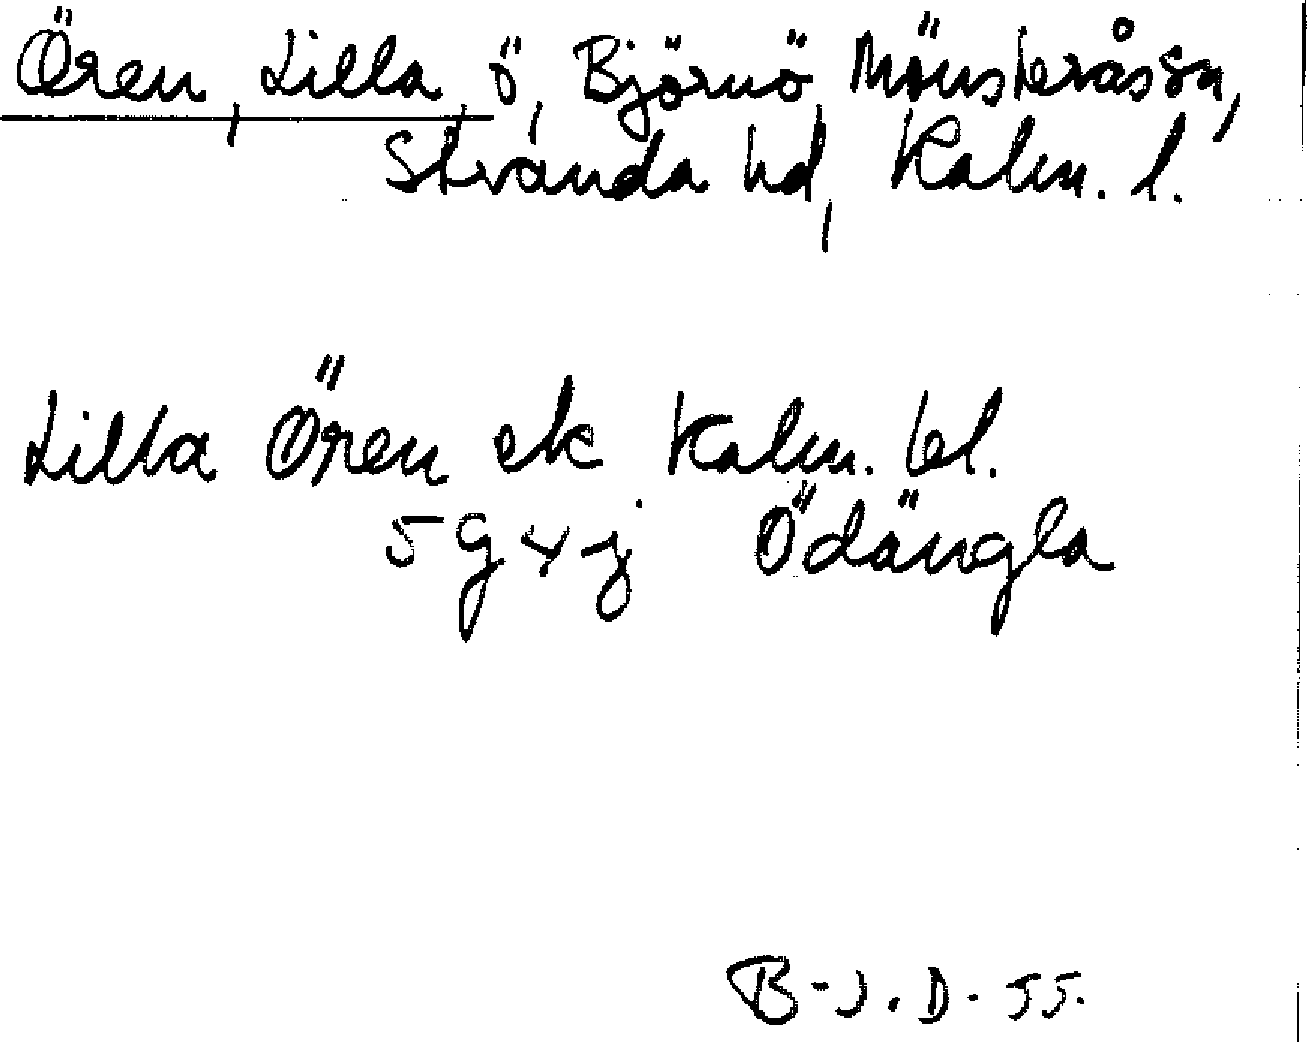 Ören, Lilla, ö, Björnö, Mönsteråssn,
Stranda hd, Kalm. l.
Lilla Ören ek Kalm. bl.
5 G 4 j Ödängla
B-J.D-55.